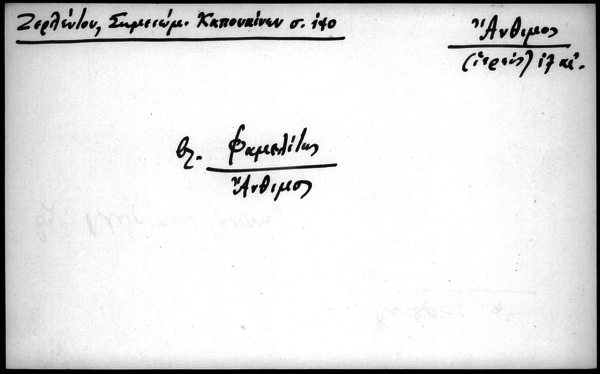 Ζερλέντου, Σημειώμ. Καπουκίνων σ. 140
Ἄνθιμος
(ἱερεύς) ιζ αἰ.
βλ. Φαμελίτης
Ἄνθιμος